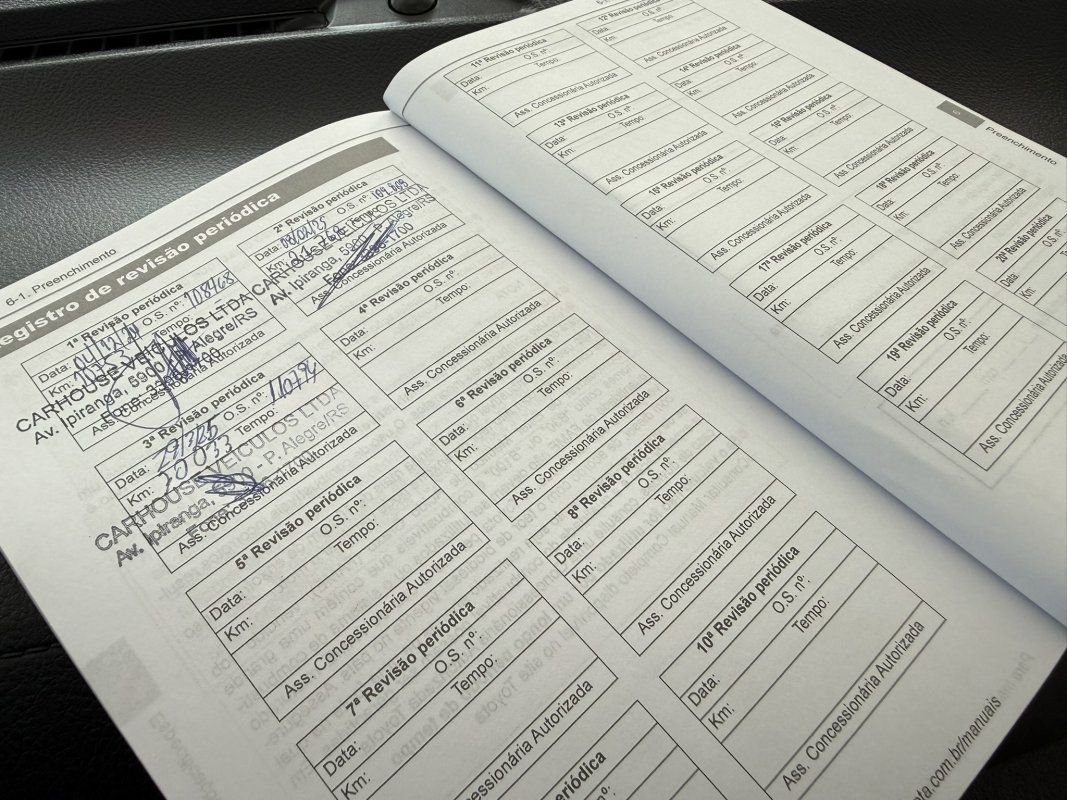 6-1. Preenchimento
egistro de revisão periódica
1ª Revisão periódica
Data: 04/12/24 O.S. nº: 108468
Km: Tempo:
CARHOUSE VEICULOS LTDA
Av. Ipiranga, 5900 - P. Alegre/RS
Ass. Concessionária Autorizada
2ª Revisão periódica
Data: O.S. nº: 109.809
Km: Tempo:
CARHOUSE VEICULOS LTDA
Av. Ipiranga, 5900 - P. Alegre/RS
Ass. Concessionária Autorizada
3ª Revisão periódica
Data: 29/3/25 O.S. nº: 110794
Km: 30033 Tempo:
CARHOUSE VEICULOS LTDA
Av. Ipiranga, 5900 - P. Alegre/RS
Fone
Ass. Concessionária Autorizada
4ª Revisão periódica
Data: O.S. nº:
Km: Tempo:
Ass. Concessionária Autorizada
5ª Revisão periódica
Data: O.S. nº:
Km: Tempo:
Ass. Concessionária Autorizada
6ª Revisão periódica
Data: O.S. nº:
Km: Tempo:
Ass. Concessionária Autorizada
7ª Revisão periódica
Data: O.S. nº:
Km: Tempo:
8ª Revisão periódica
Data: O.S. nº:
Km: Tempo:
Ass. Concessionária Autorizada
periódica
10ª Revisão periódica
Data: O.S. nº:
Km: Tempo:
Ass. Concessionária Autorizada
11ª Revisão periódica
Data: O.S. nº:
Km: Tempo:
Ass. Concessionária Autorizada
12ª Revisão periódica
Data: O.S. nº:
Km: Tempo:
Ass. Concessionária Autorizada
13ª Revisão periódica
Data: O.S. nº:
Km: Tempo:
Ass. Concessionária Autorizada
14ª Revisão periódica
Data: O.S. nº:
Km: Tempo:
Ass. Concessionária Autorizada
15ª Revisão periódica
Data: O.S. nº:
Km: Tempo:
Ass. Concessionária Autorizada
16ª Revisão periódica
Data: O.S. nº:
Km: Tempo:
Ass. Concessionária Autorizada
17ª Revisão periódica
Data: O.S. nº:
Km: Tempo:
Ass. Concessionária Autorizada
18ª Revisão periódica
Data: O.S. nº:
Km: Tempo:
Ass. Concessionária Autorizada
19ª Revisão periódica
Data: O.S. nº:
Km: Tempo:
Ass. Concessionária Autorizada
20ª Revisão
Data: O.S. nº:
Km:
6
Preenchimento
ta.com.br/manuais